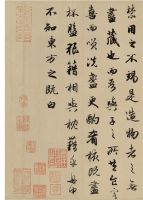 禁用之不竭是造物者之無
盡藏也而吾與子之所共食客
喜而咲洗盞更酌肴核既盡
杯盤狼籍相與枕藉乎舟中
不知東方之既白